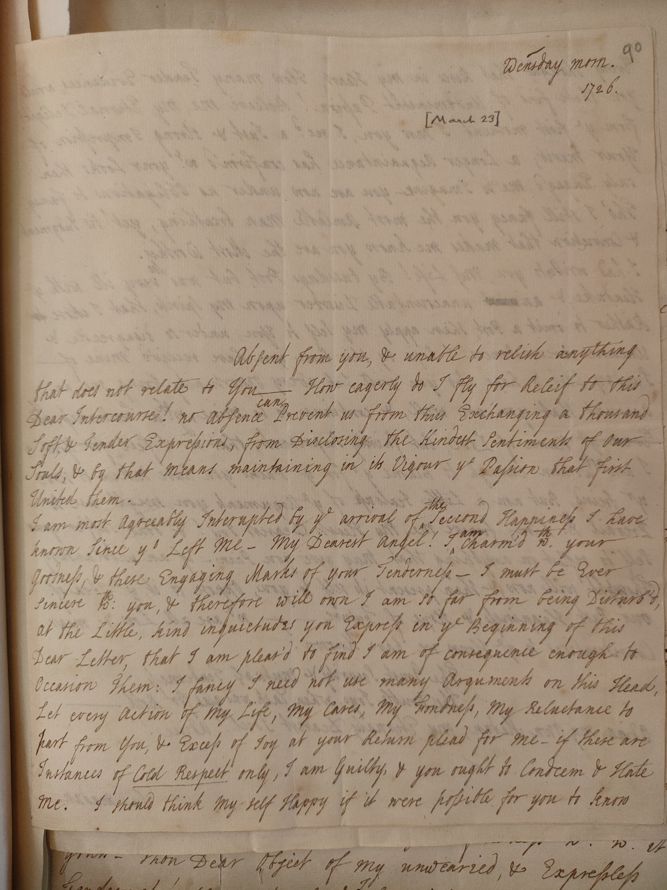 90
Wensday morn.
1726.
[March 23]
Absent from you, & unable to relish anything
that does not relate to You — How eagerly do I fly for Releif to this
Dear Intercourse! no Absence can Prevent us from this Exchanging a thousand
Soft & Tender Expressions, from Disclosing the Kindest Sentiments of our
Souls, & by that means maintaining in its Vigour ye Passion that first
United them.
I am most Agreeably Interupted by ye arrival of the Second Happiness I have
known Since yo Left Me — My Dearest Angel! I am Charm'd wth: your
Goodness, & these Engaging Marks of your Tenderness — I must be Ever
Sincere to: you, & therefore will own I am so far from being Disturb'd,
at the Little, kind inquietudes you Express in ye Beginning of this
Dear Letter, that I am pleas'd to find I am of consequence enough to
Occasion Them: I fancy I need not use many Arguments on this Head,
Let every Action of My Life, My Cares, My Fondness, My Reluctance to
part from You, & Excess of Joy at your Return plead for Me — if these are
Instances of Cold Respect only, I am Guilty, & you ought to Condem & Hate
Me. I should think My self Happy if it were possible for you to know
thou Dear Object of my unwearied, & Expressless